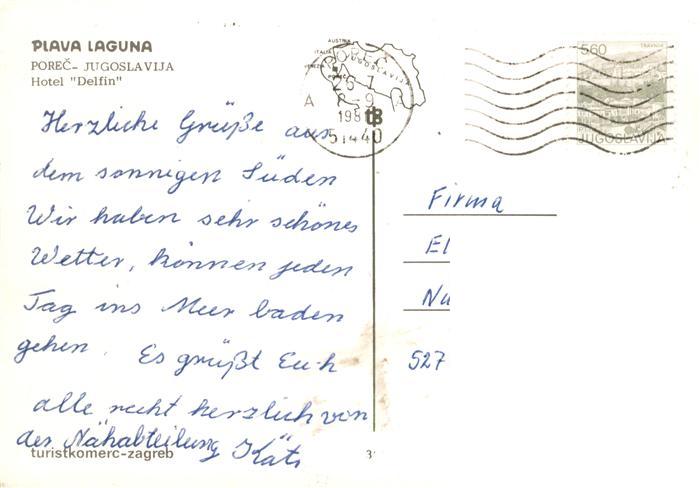 PLAVA LAGUNA
POREČ- JUGOSLAVIJA
Hotel "Delfin"
Herzliche Grüße aus
dem sonnigen Süden
Wir haben sehr schönes
Wetter, können jeden
Tag ins Meer baden
gehen. Es grüßt Euch
alle recht herzlich von
der Nähabteilung Käti
turistkomerc-zagreb
3
AUSTRIA
ITALIA
JUGOSLAVIJA
POREČ
26-7
8-9
A A
198
51440
TRAVNIK
5.60
JUGOSLAVIJA
Firma
El
Nu
527